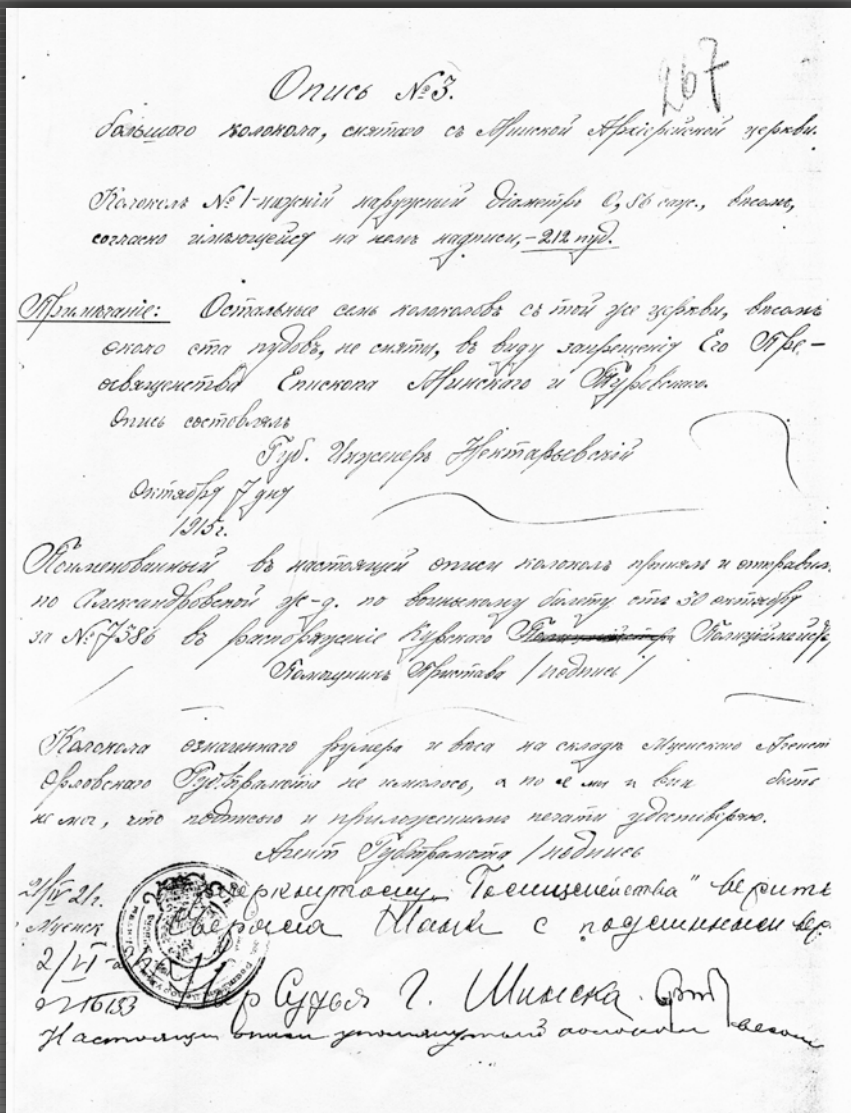 267
Опись №3.
большого колокола, снятаго съ Минской Архіерейской церкви.
Колоколъ №1-нижній наружный діаметръ 0,56 саж., вѣсомъ,
согласно имѣющейся на немъ надписи,-212 пуд.
Примѣчаніе: Остальные семь колоколовъ съ той же церкви, вѣсомъ
около ста пудовъ, не сняты, въ виду запрещенія Его Пре-
освященства Епископа Минскаго и Туровскаго.
Опись составлялъ
Губ. Инженеръ Нектарьевскій
Октября 7 дня
1915г.
Поименованный въ настоящей описи колоколъ принялъ и отправил.
по Александровской ж-д. по воинскому билету отъ 30 октября
за №7586 въ распоряженіе Курскаго Полицеймейстера
Помощникъ Пристава /подпись/
Колокола означеннаго размера и веса на складѣ Мценского Агенст
Орловскаго не имелось, а по и быть
не мог, что подписью и приложением печати удостоверяю.
Агент /подпись
21/IV 21г.
Мценск
верить
с подлинным вер.
2/VI
Нар Судья г. Минска.
Настоящей описи упомянутый колокол весом